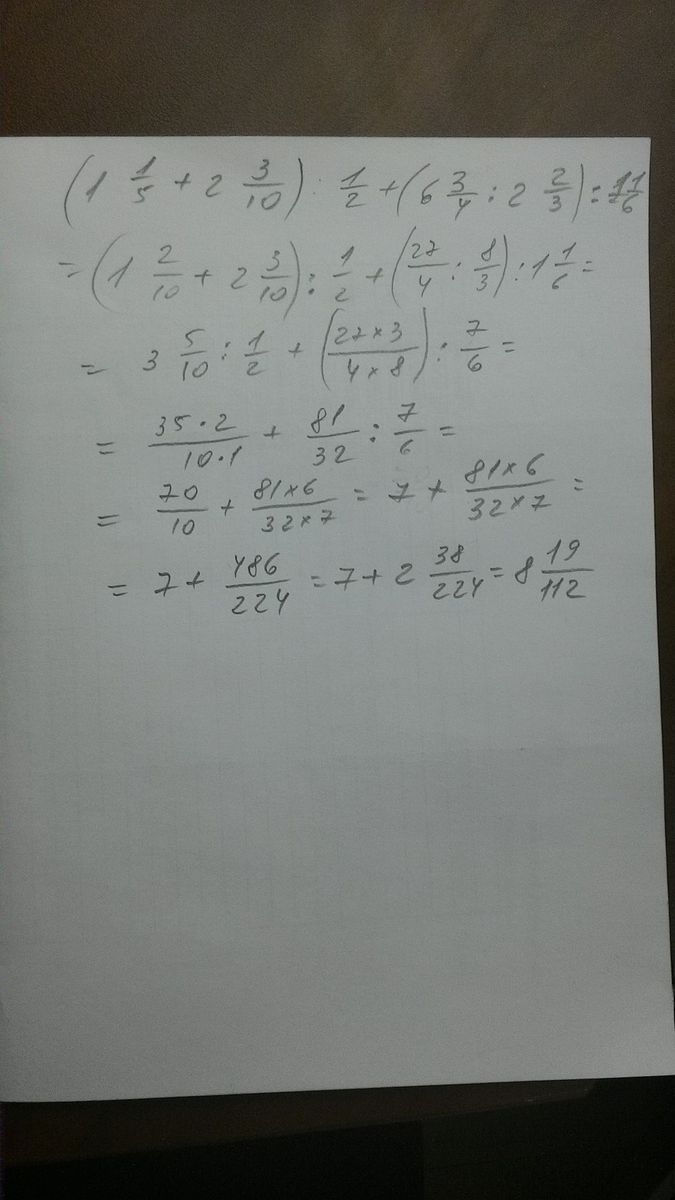 (1 1/5 + 2 3/10) : 1/2 + (6 3/4 : 2 2/3) : 1 1/6
= (1 2/10 + 2 3/10) : 1/2 + (27/4 : 8/3) : 1 1/6 =
= 3 5/10 : 1/2 + (27×3/4×8) : 7/6 =
= 35·2/10·1 + 81/32 : 7/6 =
= 70/10 + 81×6/32×7 = 7 + 81×6/32×7 =
= 7 + 486/224 = 7 + 2 38/224 = 8 19/112